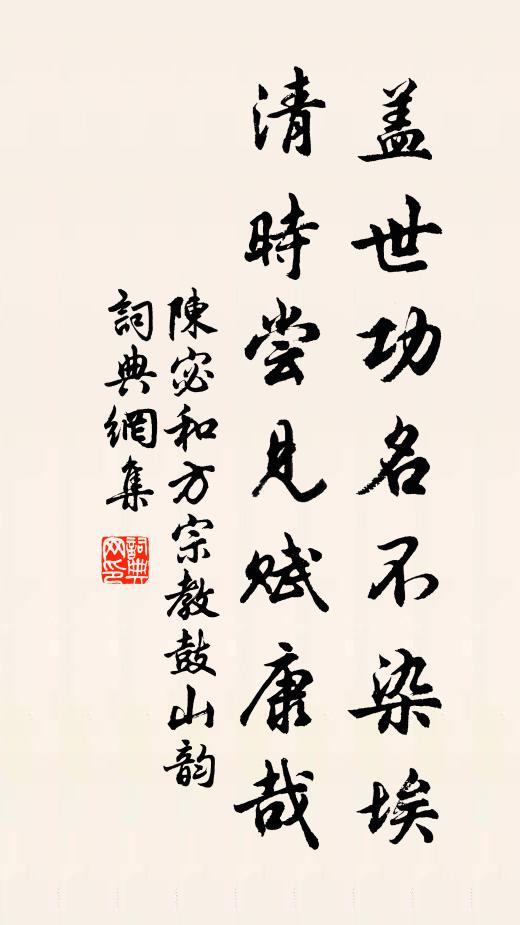 盖世功名不染埃
清時尝見赋康哉
陳宓和方宗教鼓山韵
詞典網集
詞典
网印